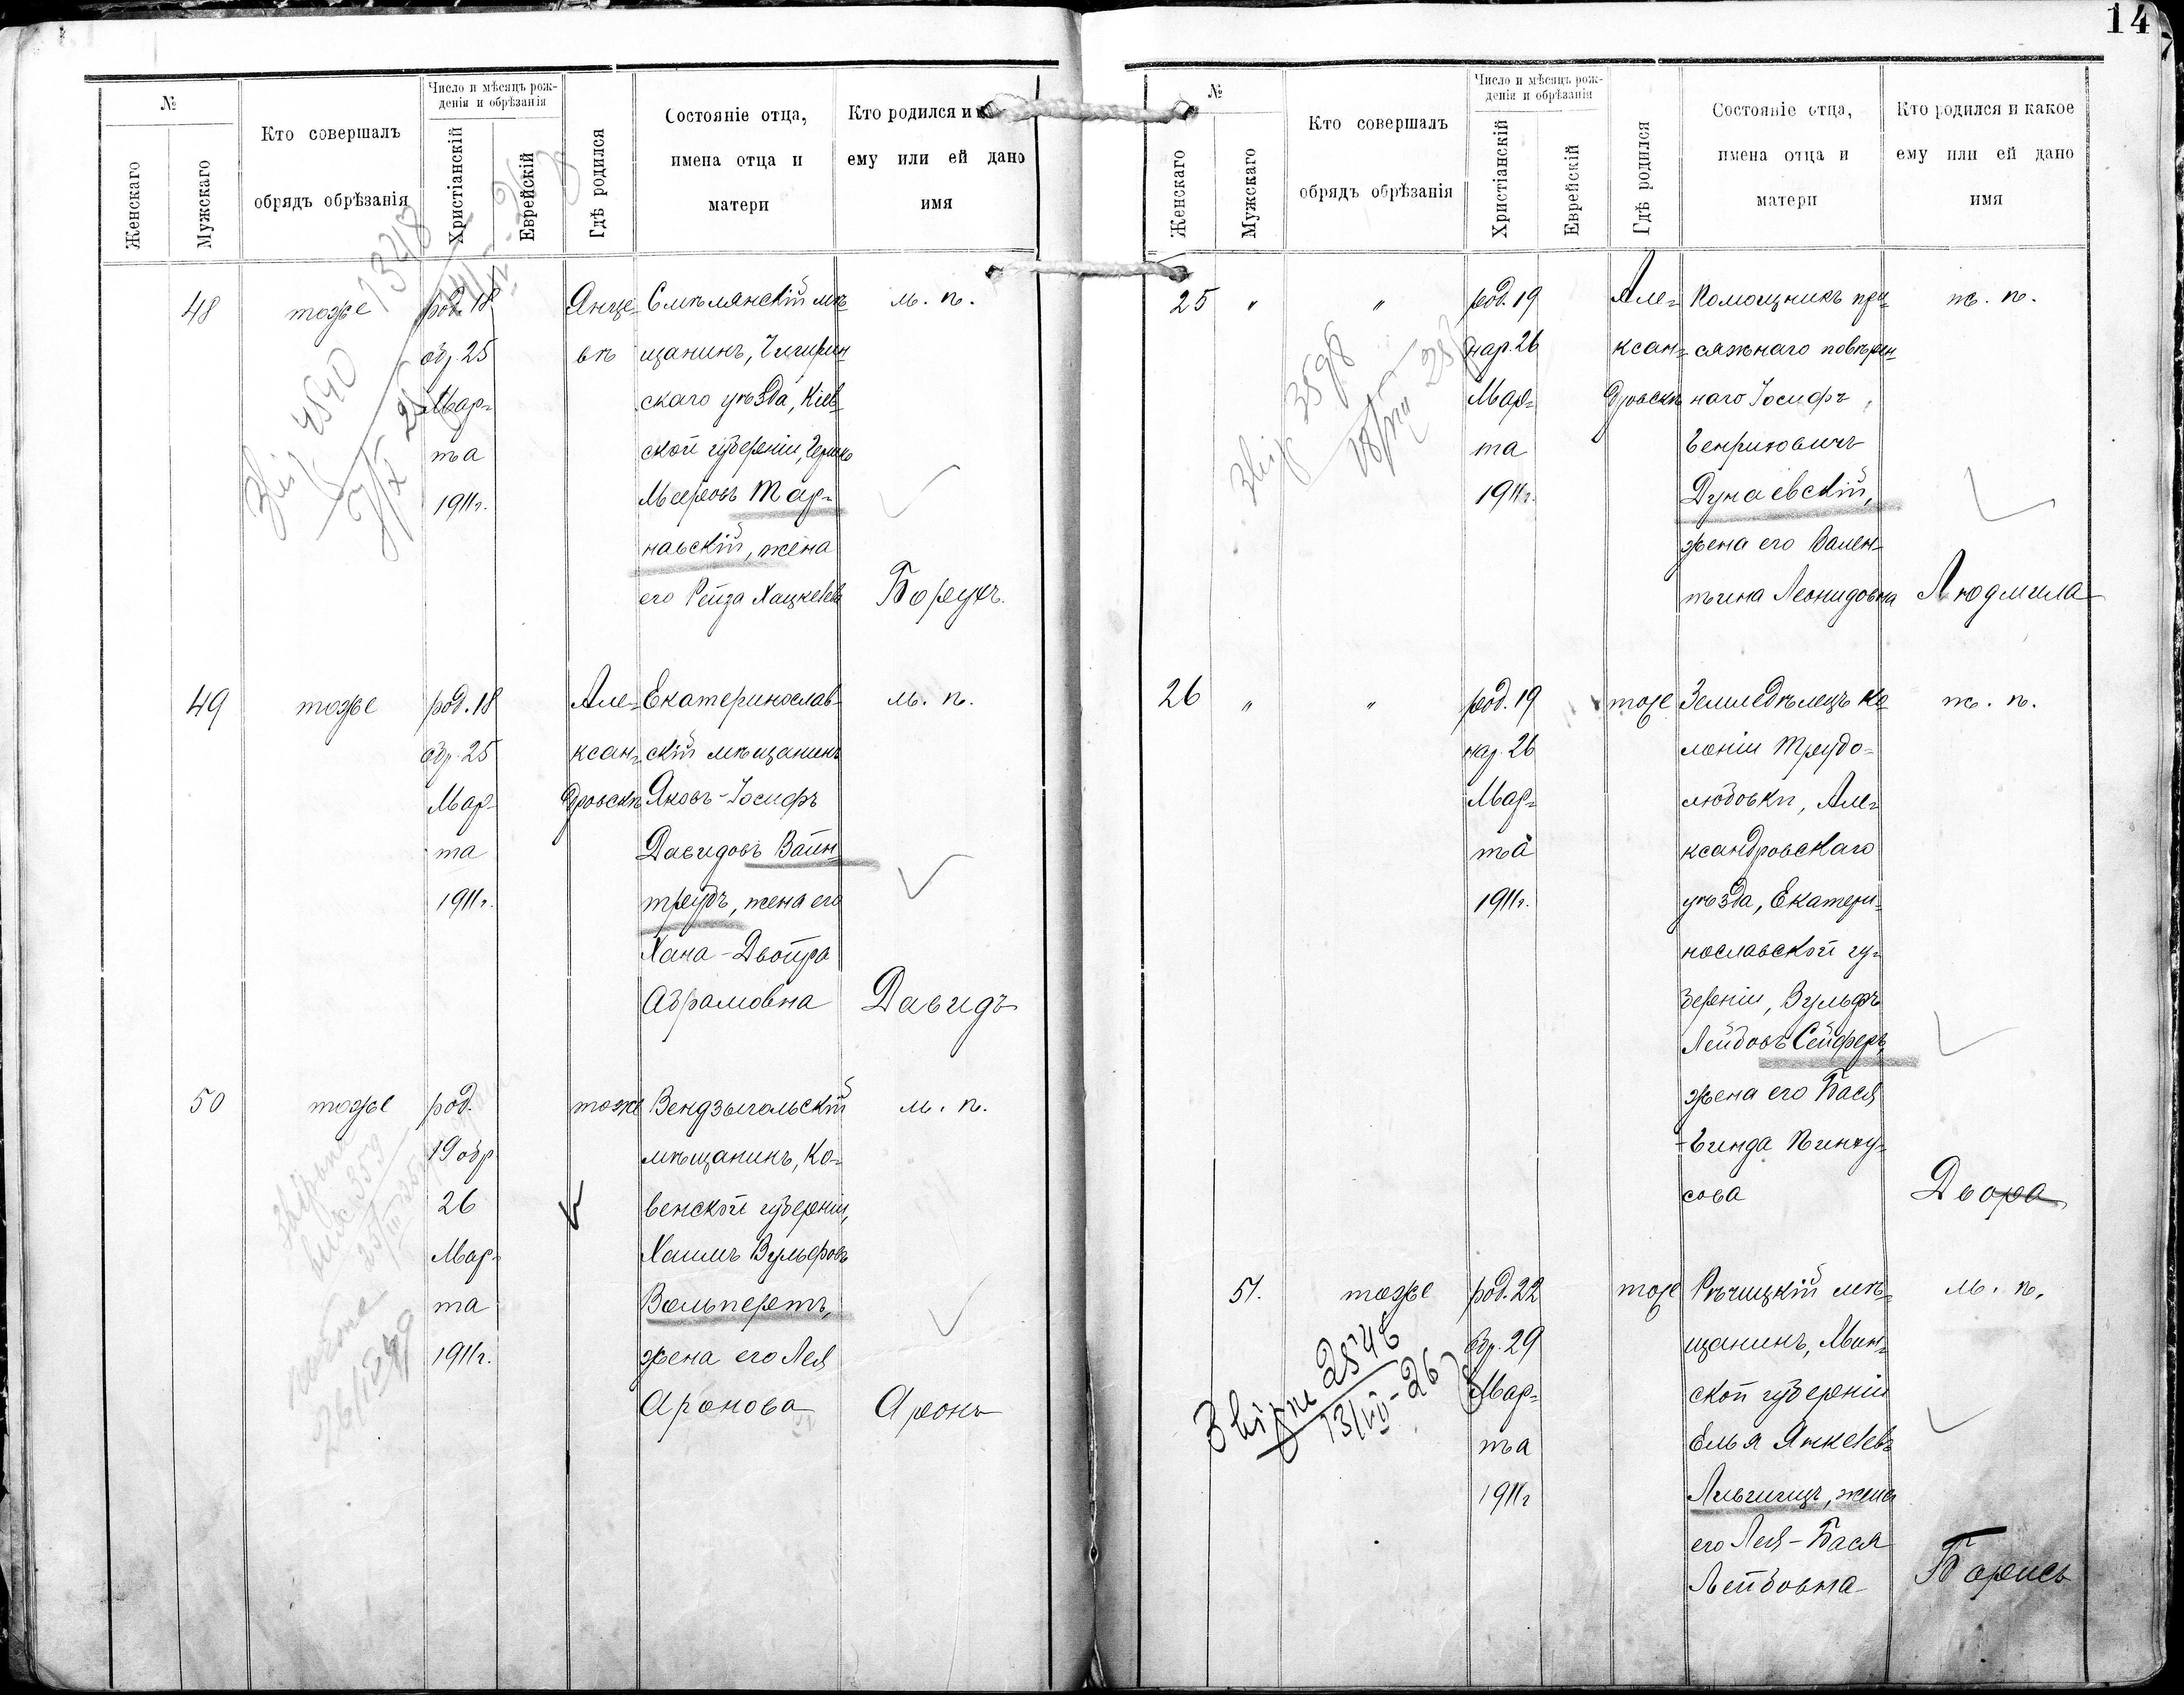 14
№
Женскаго
Мужскаго
Кто совершалъ
обрядъ обрѣзанія
Число и мѣсяцъ рож-
денія и обрѣзанія
Христіанскій
Еврейскій
Гдѣ родился
Состояніе отца,
имена отца и
матери
Кто родился и
ему или ей дано
имя
48
тоже
род. 18
обр. 25
Мар-
та
1911 г.
Янце-
вѣ
Смѣлянскій мѣ-
щанинъ, Чигирин-
скаго уѣзда, Кіев-
ской губерніи,
Мееровъ Тар-
навскій, жена
его Рейза Хацкелева
м. п.
Борухъ.
4540
1348
49
тоже
род. 18
обр. 25
Мар-
та
1911 г.
Але-
ксан-
дровскѣ
Екатеринослав-
скій мѣщанинъ
Яковъ-Іосифъ
Давидовъ Вайн-
трубъ, жена его
Хана-Двойра
Абрамовна
м. п.
Давидъ
50
тоже
род.
19 обр.
26
Мар-
та
1911 г.
тоже
Вендзыгольскій
мѣщанинъ, Ко-
венской губерніи,
Хаимъ Вульфовъ
Вольперетъ,
жена его Лея
Аронова
м. п.
Аронъ
№
Женскаго
Мужскаго
Кто совершалъ
обрядъ обрѣзанія
Число и мѣсяцъ рож-
денія и обрѣзанія
Христіанскій
Еврейскій
Гдѣ родился
Состояніе отца,
имена отца и
матери
Кто родился и какое
ему или ей дано
имя
25 " "
род. 19
нар. 26
Мар-
та
1911 г.
Але-
ксан-
дровскѣ
Помощникъ при-
сяжнаго повѣрен-
наго Іосифъ
Генриховичъ
Дунаевскій,
жена его Вален-
тина Леонидовна
ж. п.
Людмила
3598
26 " "
род. 19
нар. 26
Мар-
та
1911 г.
тоже
Земледѣлецъ ко-
лоніи Трудо-
любовки, Але-
ксандровскаго
уѣзда, Екатери-
нославской гу-
берніи, Вульфъ
Лейбовъ Сейферъ,
жена его Бася
-Гинда Пинху-
сова
ж. п.
Двора
51.
тоже
род. 22
обр. 29
Мар-
та
1911 г
тоже
Рѣчицкій мѣ-
щанинъ, Мин-
ской губерніи
Елья Янкелевъ
Льгигицъ, жена
его Лея-Бася
Лейбовна
м. п.
Борисъ
Звірне 2546
13/VII-26